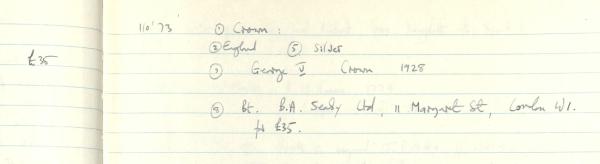 110'73 ① Crown :
② England ⑤ Silver
£35
③ George V Crown 1928
⑧ Bt. B.A. Seaby Ltd, 11 Margaret St, London W1.
for £35.